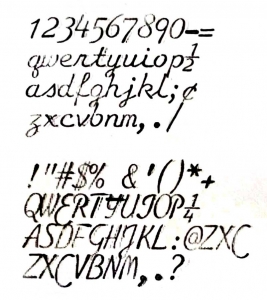 1234567890-=
qwertyuiop½
asdfghjkl;¢
zxcvbnm,./
!"#$% &'()*+
QWERTYUIOP¼
ASDFGHJKL:@ZXC
ZXCVBNM,.?